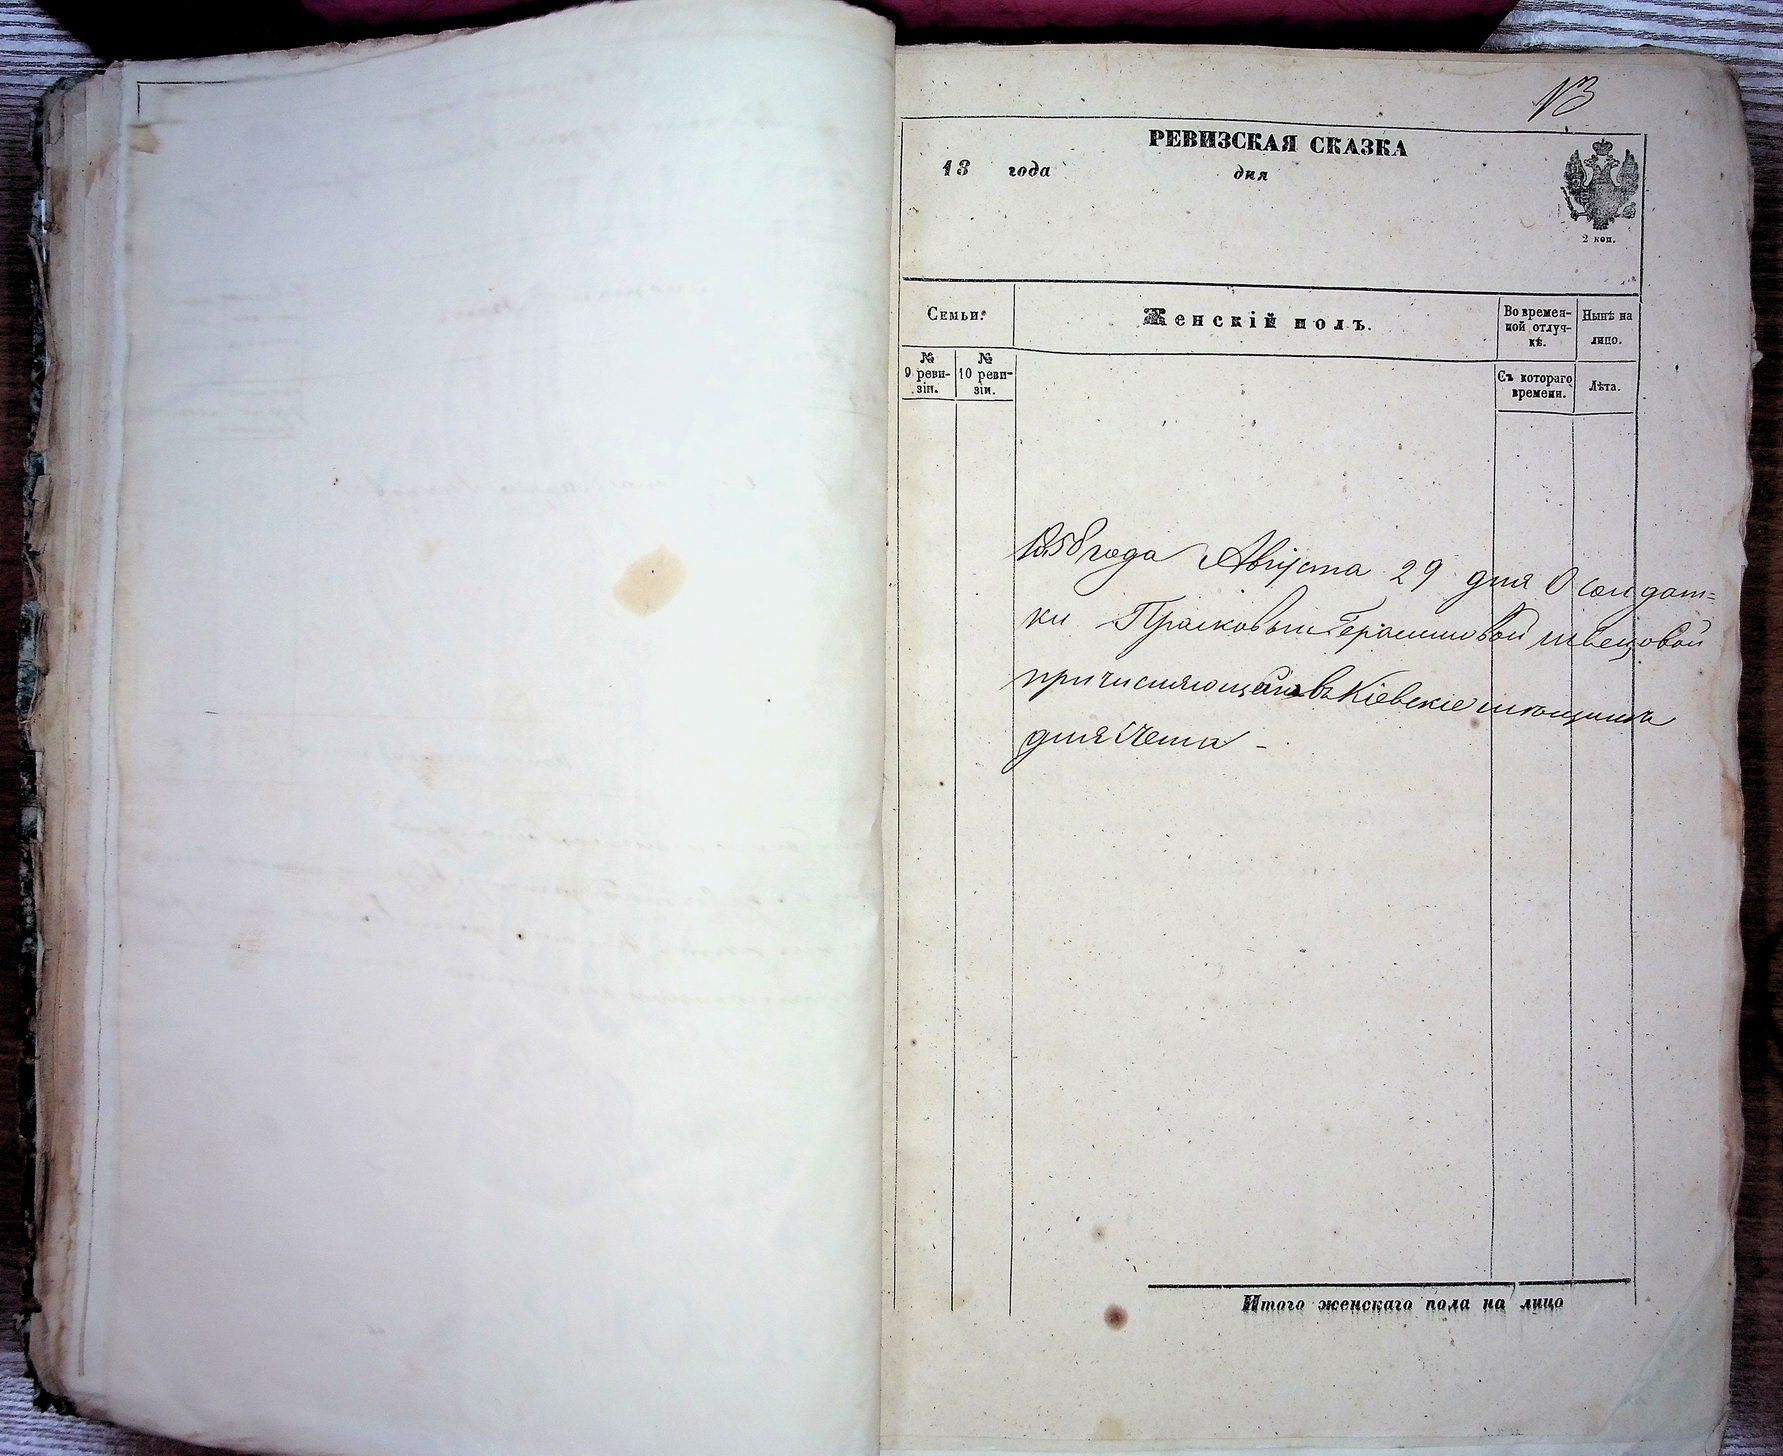 N3
РЕВИЗСКАЯ СКАЗКА
18 года дня
2 коп.
Семьи.
Женскій полъ.
Во времен-
ной отлуч-
кѣ.
Нынѣ на
лицо.
№
9 реви-
зіи.
№
10 реви-
зіи.
Съ котораго
времени.
Лѣта.
1858 года Августа 29 дня О солдат=
ки Прасковьи Герасимовой Швецовой
причисляющейся въ Кіевскіе мѣщанки
для счета -
Итого женскаго пола на лицо